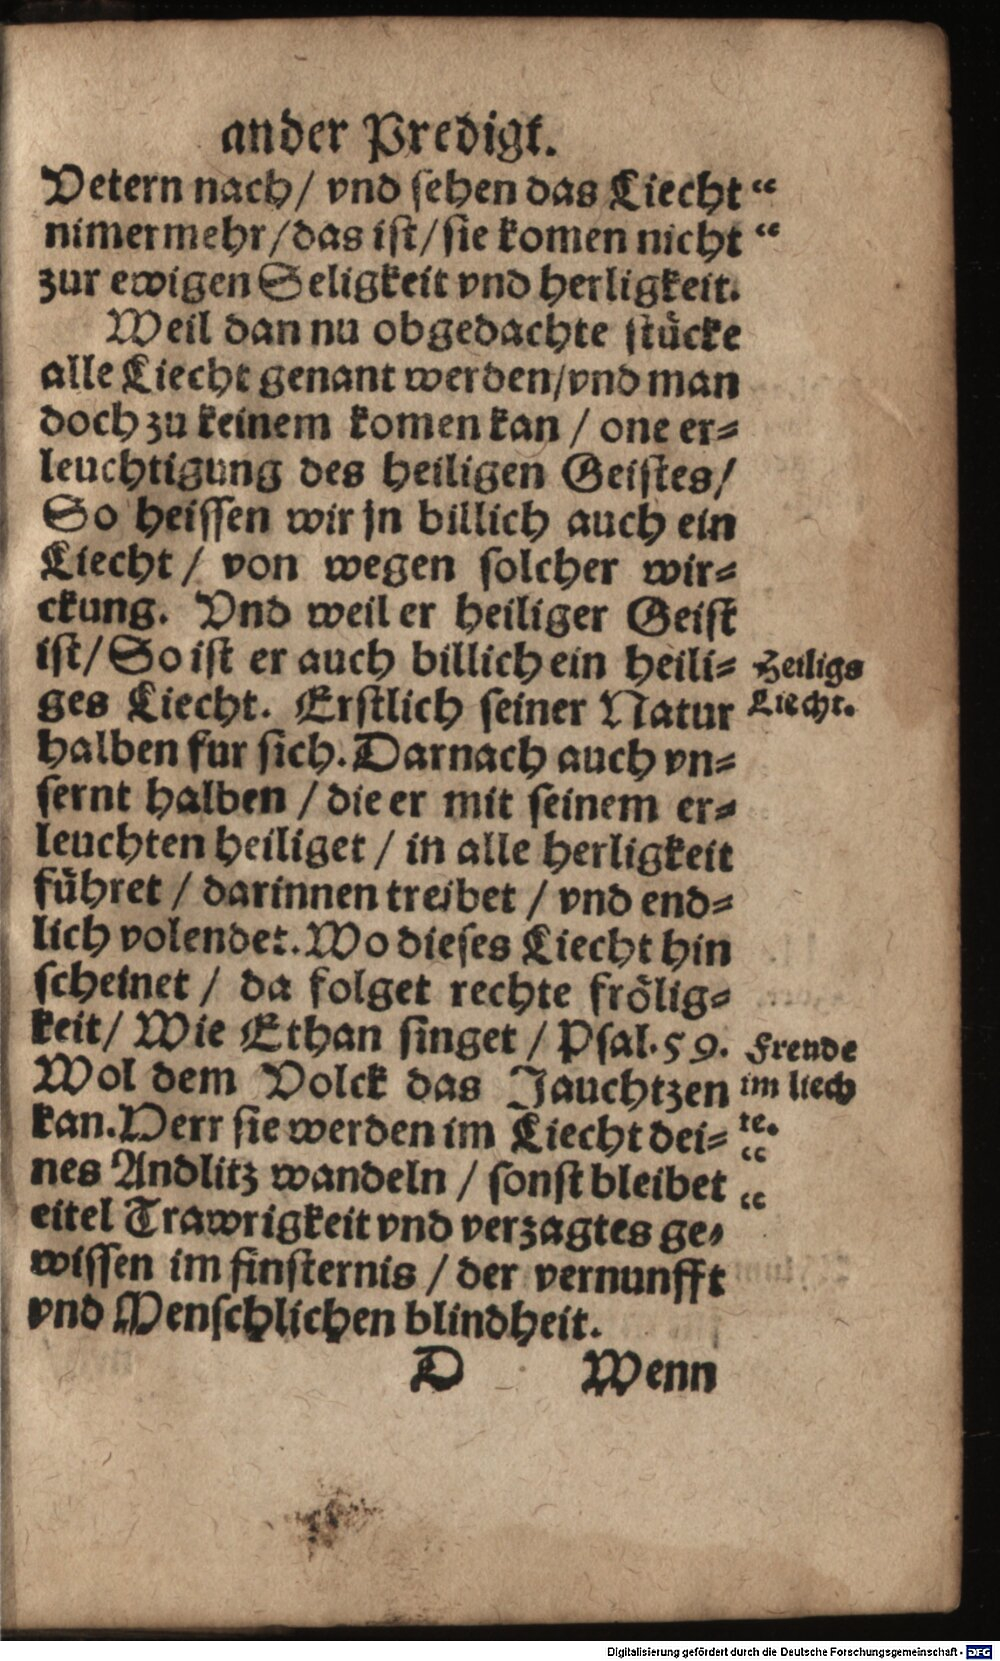 ander Predigt.
Vetern nach / vnd sehen das Liecht “
nimermehr / das ist / sie komen nicht “
zur ewigen Seligkeit vnd herligkeit.
Weil dan nu obgedachte stücke
alle Liecht genant werden / vnd man
doch zu keinem komen kan / one er=
leuchtigung des heiligen Geistes /
So heissen wir jn billich auch ein
Liecht / von wegen solcher wir=
ckung. Vnd weil er heiliger Geist
ist / So ist er auch billich ein heili=
ges Liecht. Erstlich seiner Natur
halben fur sich. Darnach auch vn=
sernt halben / die er mit seinem er=
leuchten heiliget / in alle herligkeit
führet / darinnen treibet / vnd end=
lich volendet. Wo dieses Liecht hin
scheinet / da folget rechte frölig=
keit / Wie Ethan singet / Psal. 59.
Wol dem Volck das Jauchtzen
kan. Herr sie werden im Liecht dei=
nes Andlitz wandeln / sonst bleibet
eitel Trawrigkeit vnd verzagtes ge=
wissen im finsternis / der vernunfft
vnd Menschlichen blindheit.
Heiligs
Liecht.
Frende
im liech
te.
“
“
D Wenn
Digitalisierung gefördert durch die Deutsche Forschungsgemeinschaft - DFG